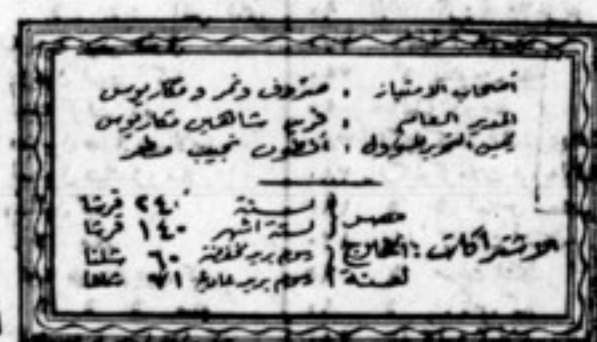 أصحاب الامتياز : صروف ونمر ومكاريوس
المدير العام : فريد شاهين مكاريوس
رئيس التحرير المسؤول : أنطون نجيب مطر
الاشتراكات :
مصر لسنة ٢٤٠ قرشا
لستة اشهر ١٤٠ قرشا
الخارج لسنة رسوم بريد مخفضة ٦٠ شلنا
رسوم بريد عادية ٧١ شلنا